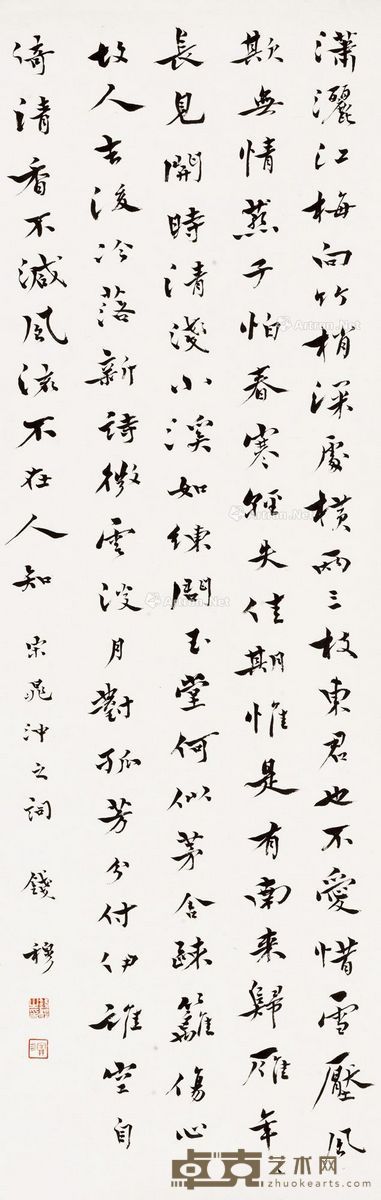 瀟灑江梅向竹梢深處橫兩三枝東君也不愛惜雪壓風
欺無情燕子怕春寒輕失佳期惟是有南來歸雁年
長見開時清淺小溪如練問玉堂何似茅舍疎籬傷心
故人去後冷落新詩微雲淡月對孤芳分付伊誰空自
倚清香不減風流不在人知 宋晁沖之詞 錢穆
Artron.Net
Artron.Net
Artron.Net
卓克艺术网
www.zhuokearts.com